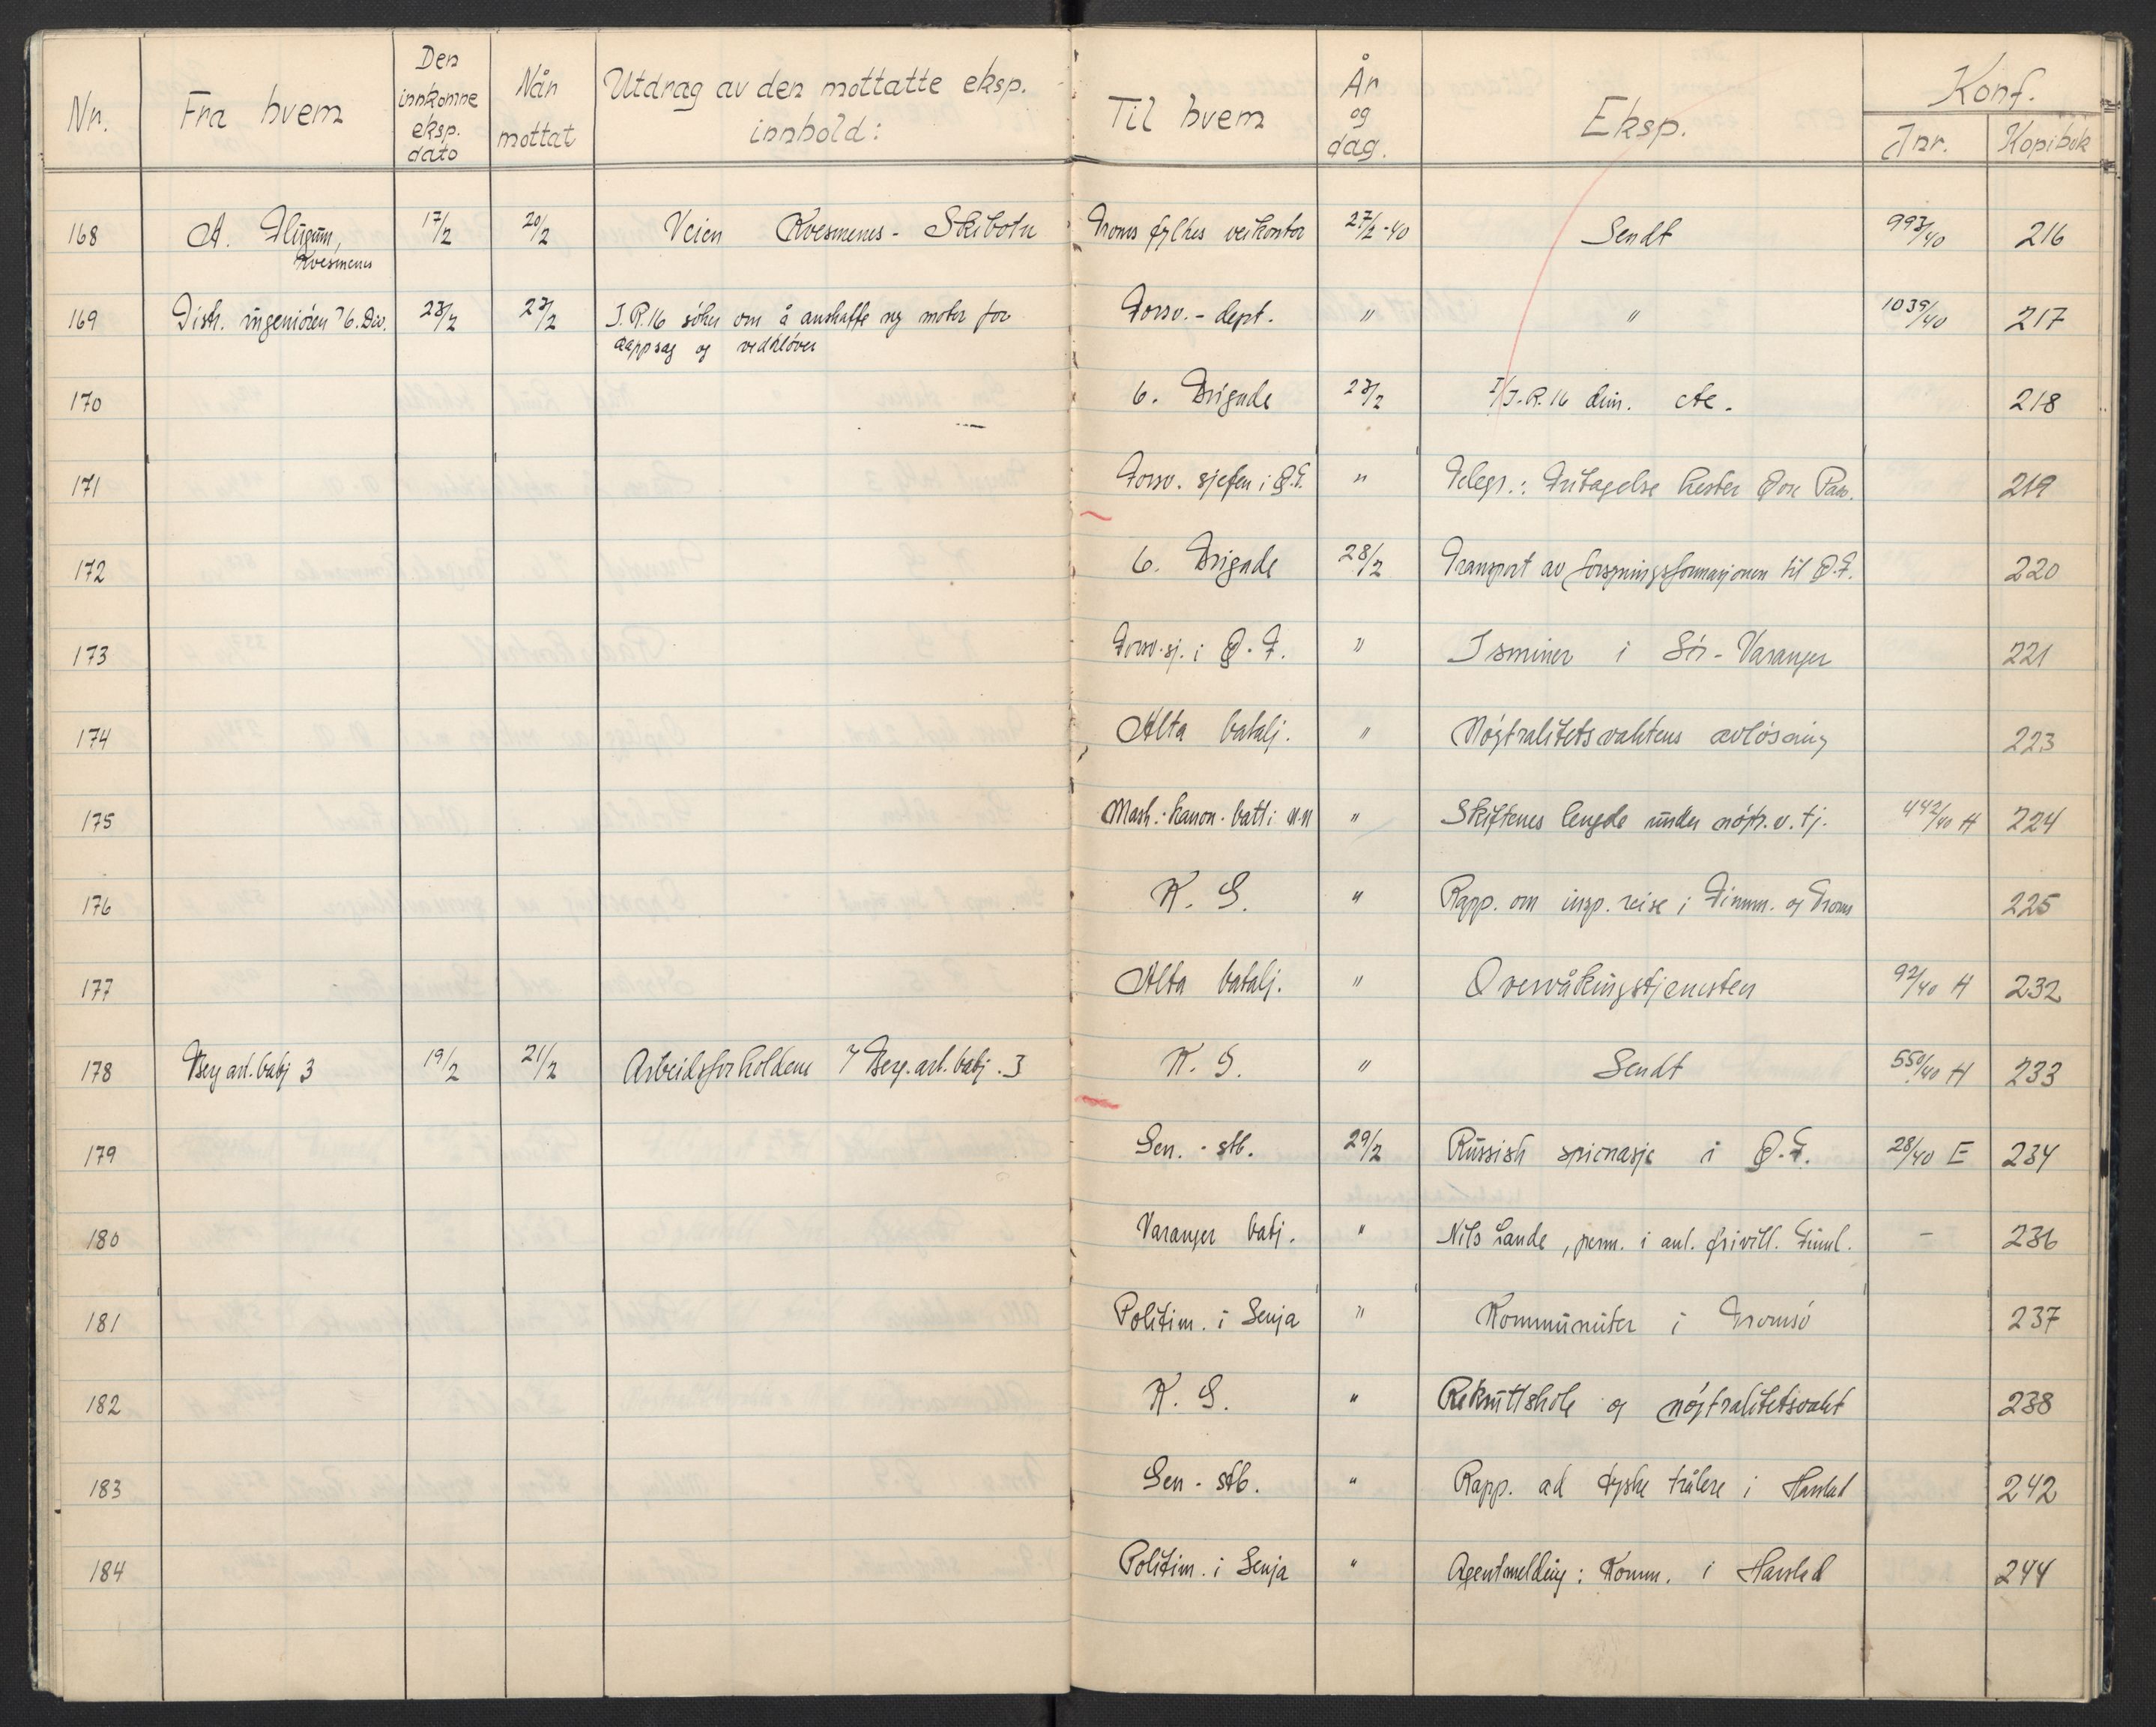 Nr. Fra hvem Den innkomne eksp. dato Når mottat Utdrag av den mottatte eksp. innhold: Til hvem År og dag. Eksp. Konf. Jnr. Kopibok
168 A. Kvesmenes 17/2 20/2 Veien Kvesmenes - Skibotn Troms fylkes veikontor 27/2-40 Sendt 993/40 216
169 Distr. ingeniøren 7 6. Div. 23/2 23/2 I.R. 16 söker om å anskaffe ny motor for
kappsag og vedkløver Forsv. - dept. " " 1039/40 217
170 6. Brigade 23/2 I/I.R. 16 dim. etc. 218
171 Forsv. sjefen i Ø.F. " Telegr.: Fritagelse hester Pasv. 219
172 6. Brigade 28/2 Transport av forsyningsformasjonen til Ø.F. 220
173 Forsv.sj. i Ø.F. " Isminer i Sör-Varanger 221
174 Alta batalj. " Nöytralitetsvaktens avlösning 223
175 Mask.-kanon-batt i N.N " Skiftenes lengde under nöytr.v.tj. 442/40 H 224
176 K. G. " Rapp. om insp. reise i Finnm. og Troms 225
177 Alta batalj. " Overvåkingstjenesten 92/40 H 232
178 Berg. art. batj 3 19/2 21/2 Arbeidsforholdene 7 Berg. art. batj. 3 K. G. " Sendt 550/40 H 233
179 Gen. - stb. 29/2 Russisk spionasje i Ø.F. 28/40 E 234
180 Varanger batj. " Nils Lande, perm. i anl. frivill. Finnl. - 236
181 Politim. i Senja " Kommunister i Tromsö 237
182 K. G. " Rekruttskole og nöytralitetsvakt 238
183 Gen - stb. " Rapp. ad tyske trålere i Harstad 242
184 Politim. i Senja " Agentmelding: Komm. i Harstad 244